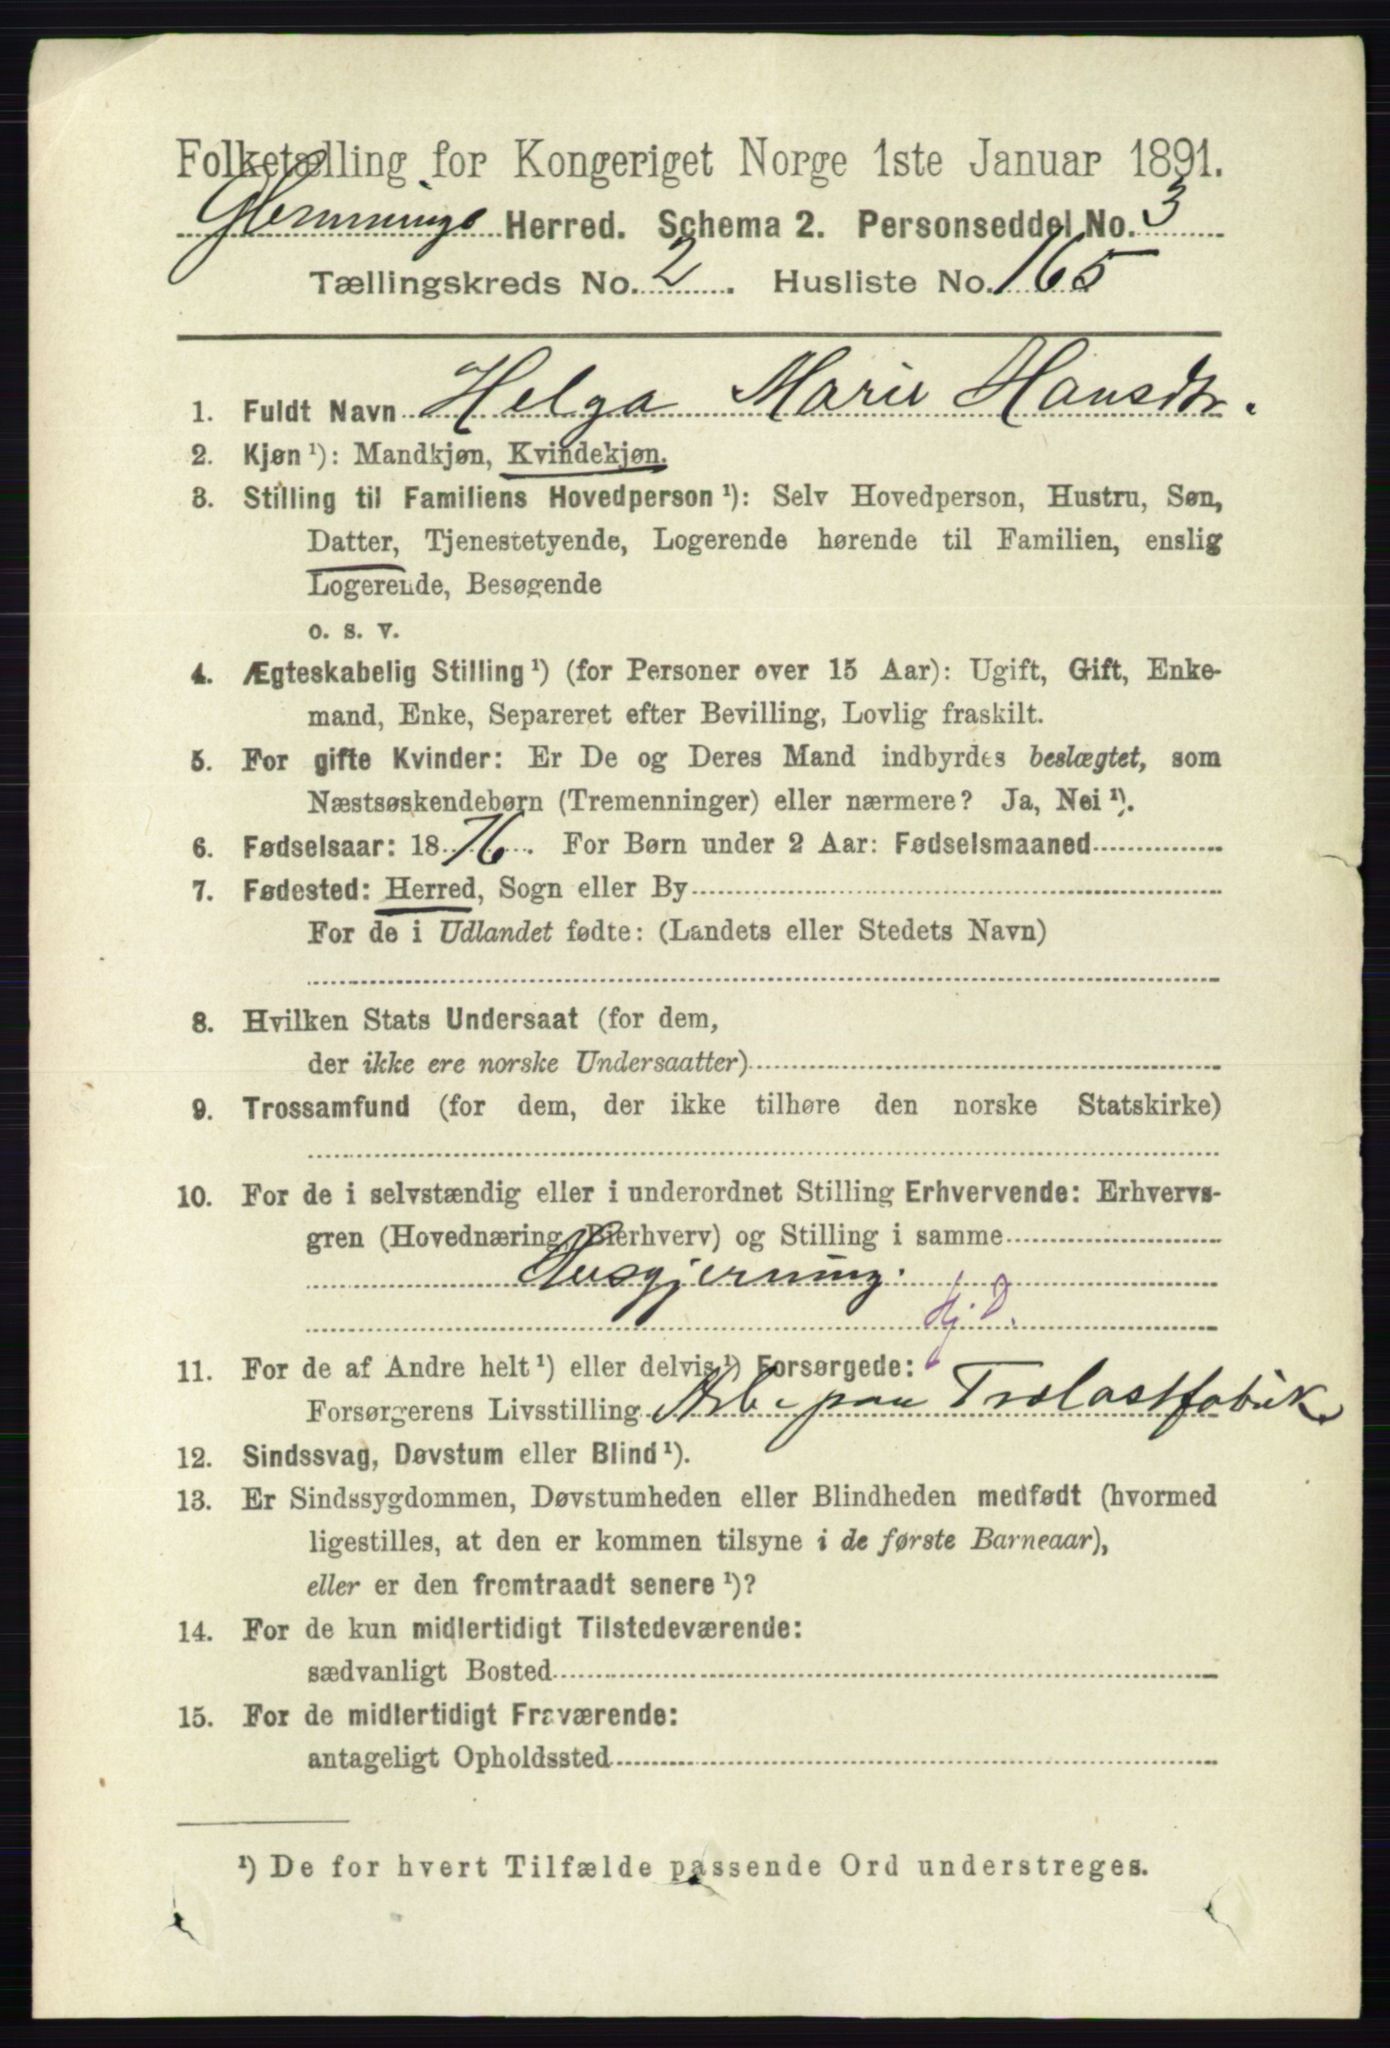 Folketælling for Kongeriget Norge 1ste Januar 1891.
Glemminge Herred. Schema 2. Personseddel No. 3
Tællingskreds No. 2. Husliste No. 165
1. Fuldt Navn Helga Marie Hansdtr.
2. Kjøn ¹): Mandkjøn, Kvindekjøn.
3. Stilling til Familiens Hovedperson ¹): Selv Hovedperson, Hustru, Søn,
Datter, Tjenestetyende, Logerende hørende til Familien, enslig
Logerende, Besøgende
o. s. v.
4. Ægteskabelig Stilling ¹) (for Personer over 15 Aar): Ugift, Gift, Enke-
mand, Enke, Separeret efter Bevilling, Lovlig fraskilt.
5. For gifte Kvinder: Er De og Deres Mand indbyrdes beslægtet, som
Næstsøskendebørn (Tremenninger) eller nærmere? Ja, Nei ¹).
6. Fødselsaar: 1876. For Børn under 2 Aar: Fødselsmaaned
7. Fødested: Herred, Sogn eller By
For de i Udlandet fødte: (Landets eller Stedets Navn)
8. Hvilken Stats Undersaat (for dem,
der ikke ere norske Undersaatter)
9. Trossamfund (for dem, der ikke tilhøre den norske Statskirke)
10. For de i selvstændig eller i underordnet Stilling Erhvervende: Erhvervs-
gren (Hovednæring, Bierhverv) og Stilling i samme
Husgjerning.
Hj. D.
11. For de af Andre helt ¹) eller delvis ¹) Forsørgede:
Forsørgerens Livsstilling Arb. paa Trælastfabrik
12. Sindssvag, Døvstum eller Blind ¹).
13. Er Sindssygdommen, Døvstumheden eller Blindheden medfødt (hvormed
ligestilles, at den er kommen tilsyne i de første Barneaar),
eller er den fremtraadt senere ¹)?
14. For de kun midlertidigt Tilstedeværende:
sædvanligt Bosted
15. For de midlertidigt Fraværende:
antageligt Opholdssted
¹) De for hvert Tilfælde passende Ord understreges.